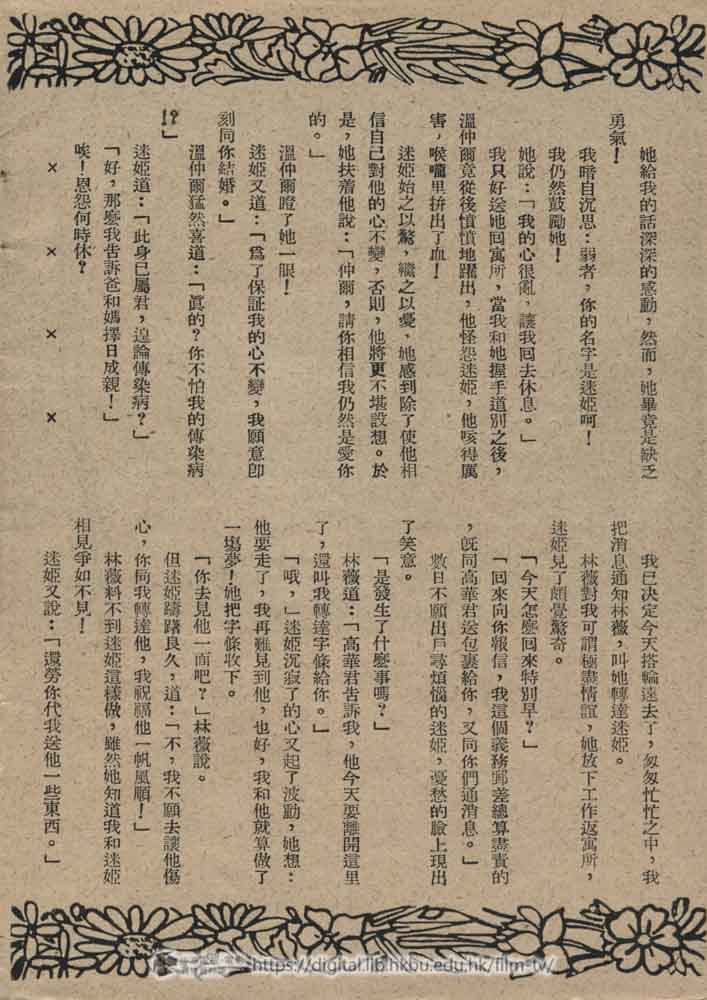 她給我的話深深的感動，然而，她畢竟是缺乏
勇氣！
我暗自沉思：弱者，你的名字是迷姬呵！
我仍然鼓勵她！
她說：「我的心很亂，讓我回去休息。」
我只好送她回寓所，當我和她握手道別之後，
溫仲爾竟從後憤憤地躍出，他怪怨迷姬，他咳得厲
害，喉嚨里拚出了血！
迷姬始之以驚，繼之以憂，她感到除了使他相
信自己對他的心不變，否則，他將更不堪設想。於
是，她扶着他說：「仲爾，請你相信我仍然是愛你
的。」
溫仲爾瞪了她一眼！
迷姬又道：「爲了保証我的心不變，我願意卽
刻同你結婚。」
溫仲爾猛然喜道：「眞的？你不怕我的傳染病
！？」
迷姬道：「此身已屬君，遑論傳染病？」
「好，那麽我告訴爸和媽擇日成親！」
唉！恩怨何時休？
× × × ×
我已决定今天搭輪遠去了，匆匆忙忙之中，我
把消息通知林薇，叫她轉達迷姬。
林薇對我可謂極盡情誼，她放下工作返寓所，
迷姬見了頗覺驚奇。
「今天怎麽回來特別早？」
「回來向你報信，我這個義務郵差總算盡責的
，旣同高華君送包裹給你，又同你們通消息。」
數日不願出戶尋煩惱的迷姬，憂愁的臉上現出
了笑意。
「是發生了什麽事嗎？」
林薇道：「高華君告訴我，他今天要離開這里
了，還叫我轉達字條給你。」
「哦，」迷姬沉寂了的心又起了波動，她想：
他要走了，我再難見到他，也好，我和他就算做了
一塲夢！她把字條收下。
「你去見他一面吧？」林薇說。
但迷姬躊躇良久，道：「不，我不願去讓他傷
心，你同我轉達他，我祝福他一帆風順！」
林薇料不到迷姬這樣做，雖然她知道我和迷姬
相見爭如不見！
迷姬又說：「還勞你代我送他一些東西。」
https://digital.lib.hkbu.edu.hk/film-tv/